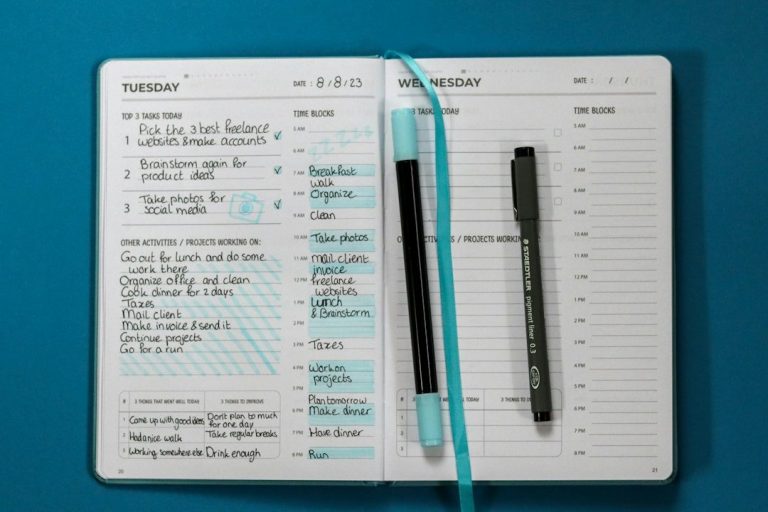 TUESDAY
DATE : 8/8/23
TOP 3 TASKS TODAY
1 Pick the 3 best freelance
websites & make accounts
2 Brainstorm again for
product ideas
3 Take photos for
social media
OTHER ACTIVITIES / PROJECTS WORKING ON:
Go out for lunch and do some
work there
Organize office and clean
Cook dinner for 2 days
Taxes
Mail client
Make invoice & send it
Continue projects
Go for a run
# 3 THINGS THAT WENT WELL TODAY 3 THINGS TO IMPROVE
1 Came up with good ideas Don't plan to much
for one day
2 Had a nice walk Take regular breaks
3 Working somewhere else Drink enough
20
TIME BLOCKS
5 AM
6 AM zzzzz
7 AM Breakfast
walk
8 AM Organize
9 AM Clean
10 AM Take photos
11 AM Mail client
invoice
12 PM freelance
websites
1 PM Lunch
& Brainstorm
2 PM
3 PM Taxes
4 PM Work on
5 PM projects
Plan tomorrow
6 PM Make dinner
7 PM Have dinner
8 PM Run
WEDNESDAY
DATE : / /
3 TASKS TODAY
ACTIVITIES / PROJECTS WORKING
# 3 THINGS WENT WELL TODAY 3 THINGS TO IMPROVE
1
2
3
TIME BLOCKS
5 AM
6 AM
7 AM
8 AM
9 AM
10 AM
11 AM
12 PM
1 PM
2 PM
3 PM
4 PM
5 PM
6 PM
7 PM
8 PM
21
STAEDTLER
pigment liner 0.3